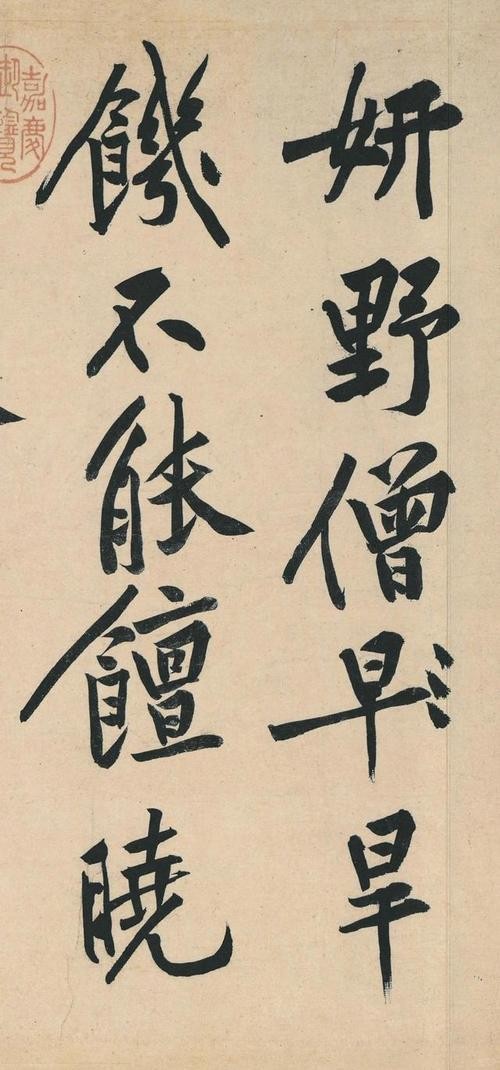 妍野僧早旱
饑不能饘曉
嘉慶
御覽